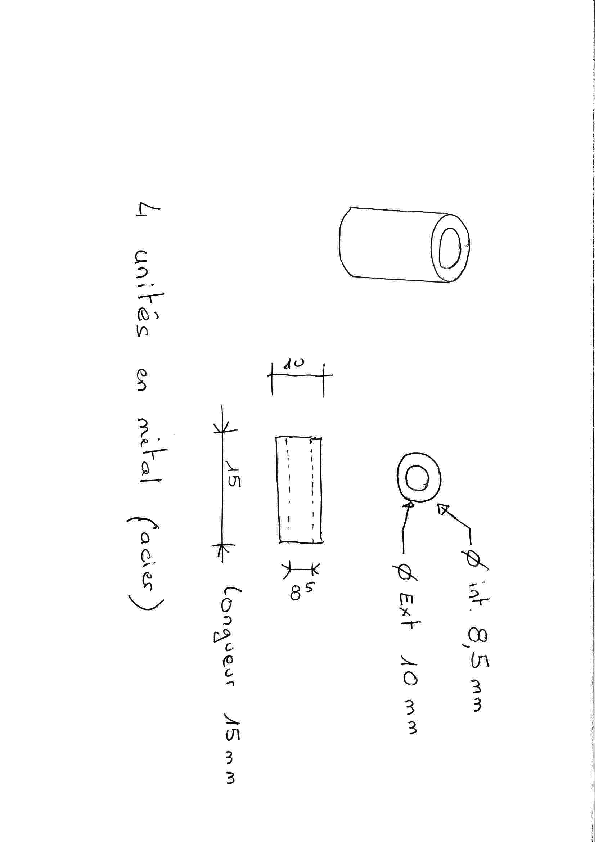 Ø int. 8,5 mm
Ø Ext 10 mm
10
8⁵
15
Longueur 15 mm
4 unités en métal (acier)